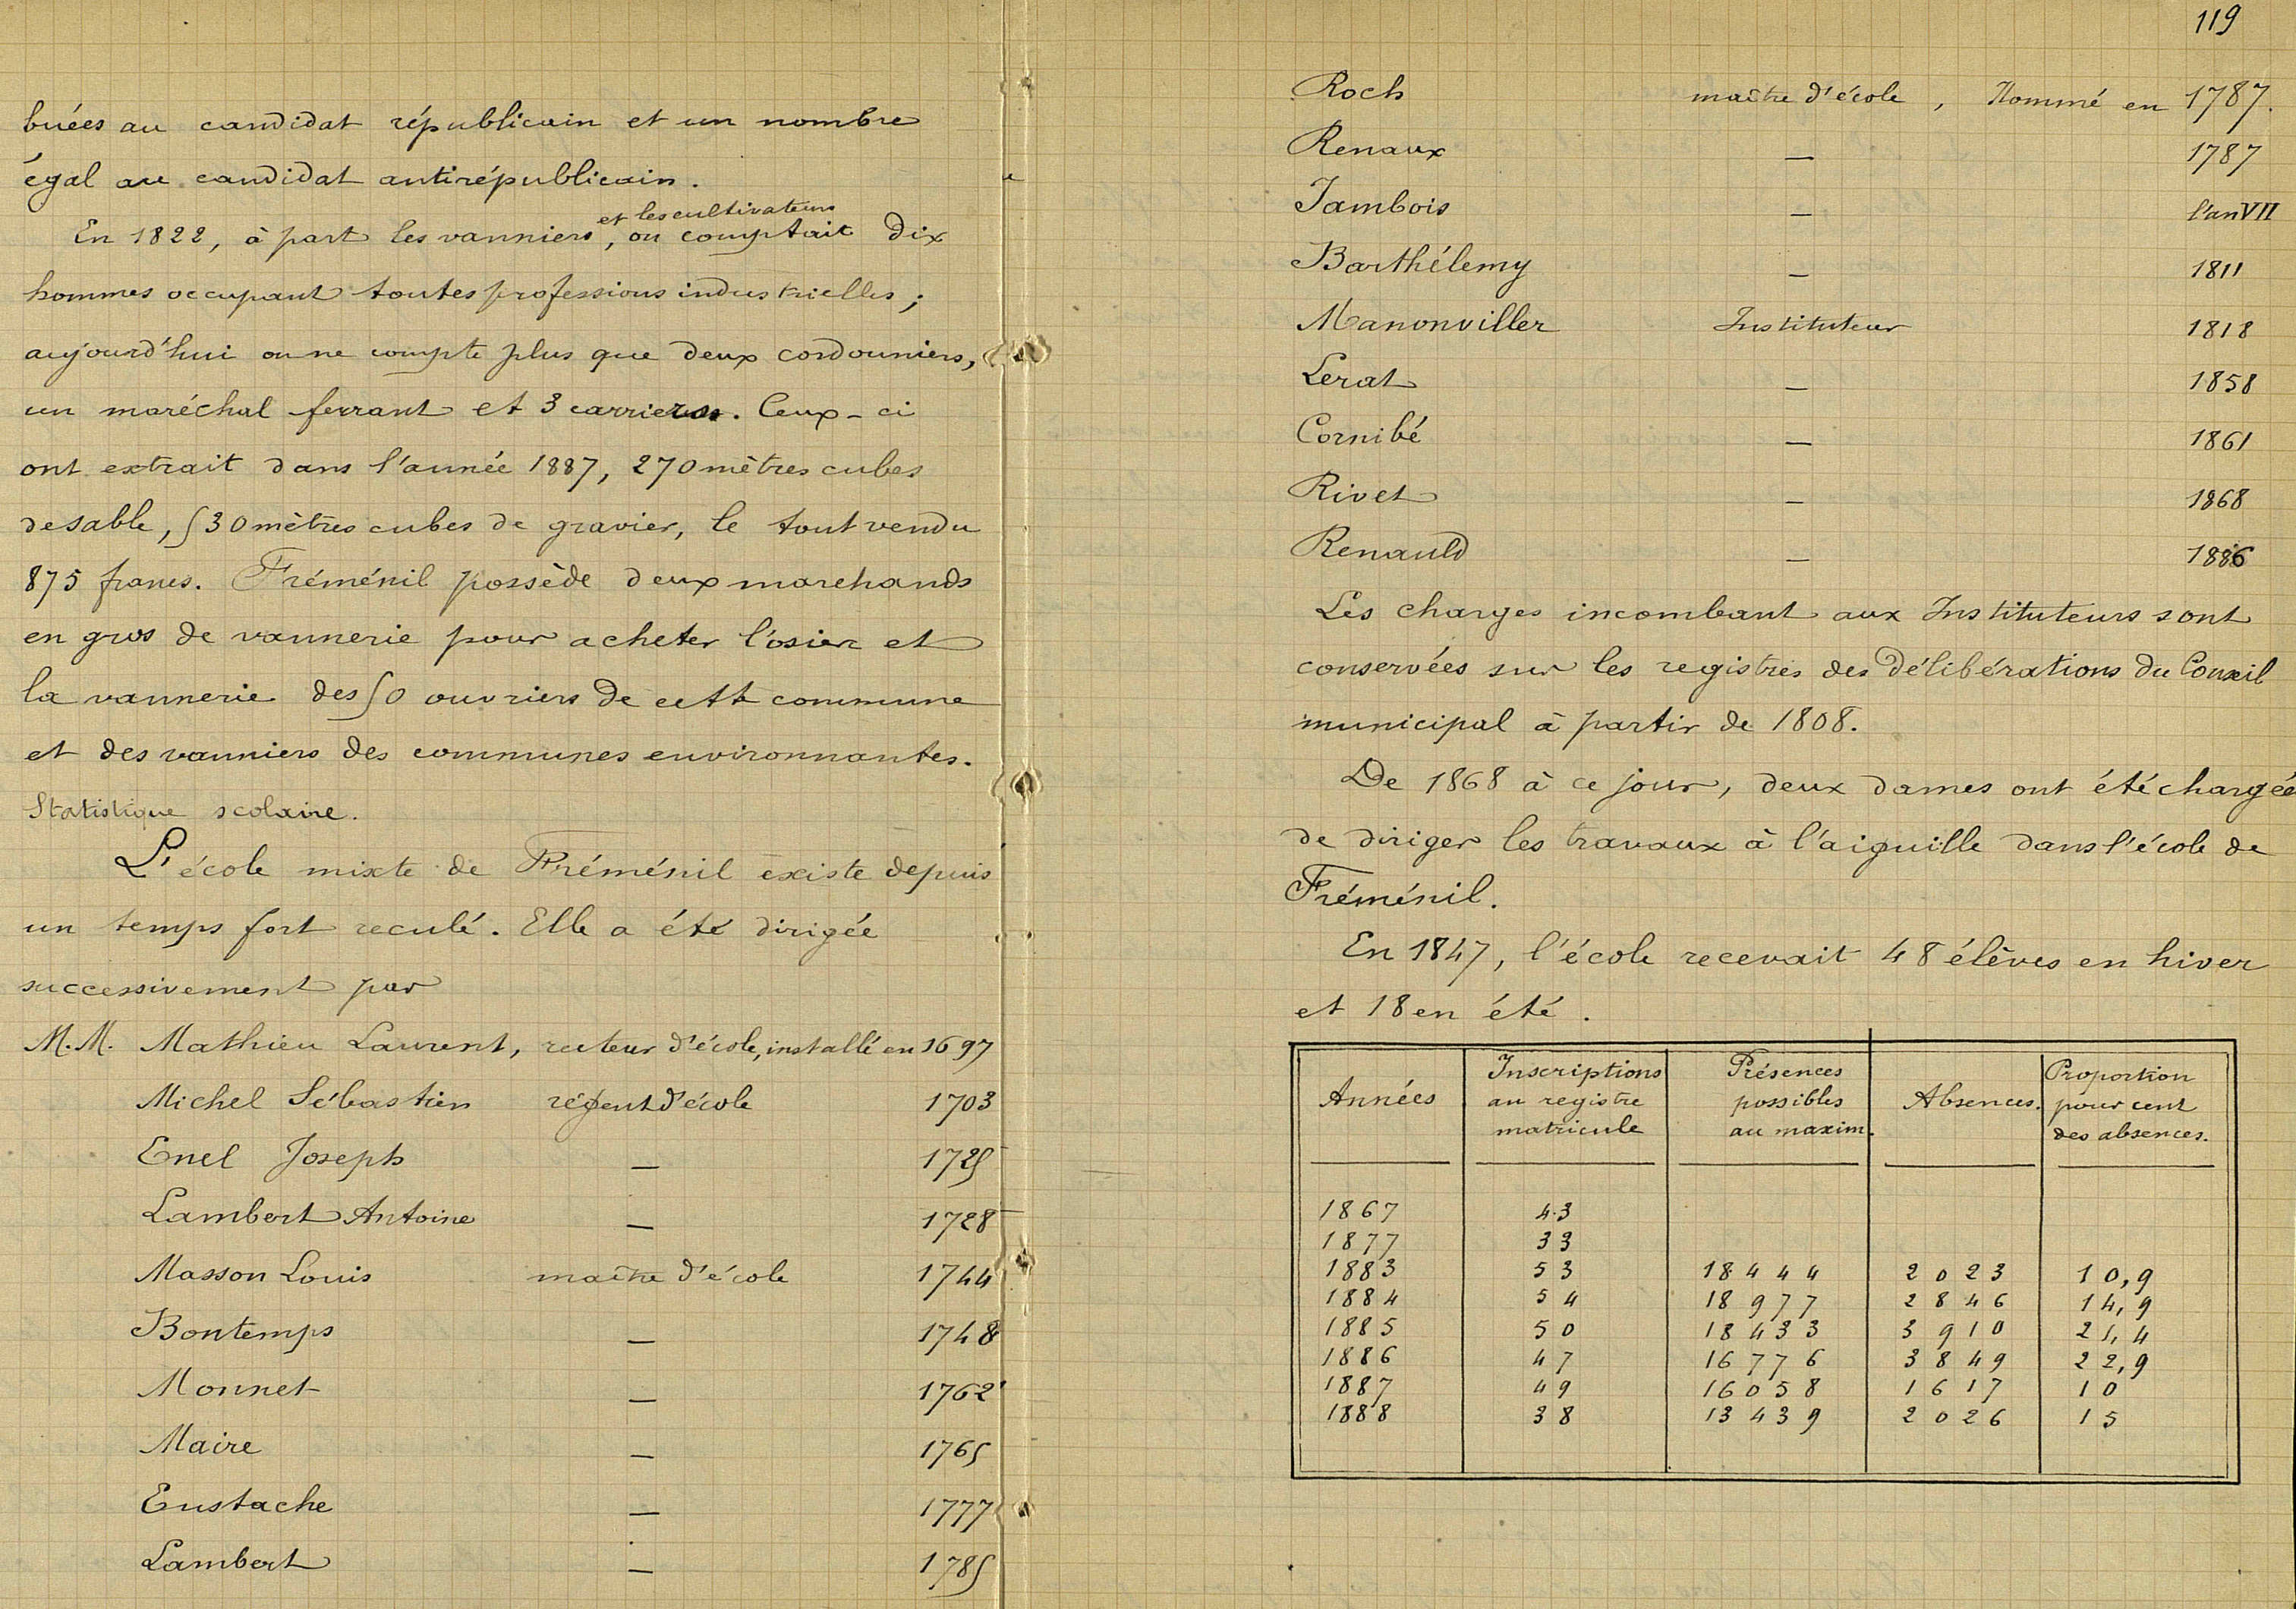 buées au candidat républicain et un nombre
égal au candidat antirépublicain.
et les cultivateurs
En 1822, à part les vanniers, on comptait dix
hommes occupant toutes professions industrielles ;
aujourd'hui on ne compte plus que deux cordonniers,
un maréchal ferrant et 3 carriers. Ceux-ci
ont extrait dans l'année 1887, 270 mètres cubes
de sable, 530 mètres cubes de gravier, le tout vendu
875 francs. Fréménil possède deux marchands
en gros de vannerie pour acheter l'osier et
la vannerie des 50 ouvriers de cette commune
et des vanniers des communes environnantes.
Statistique scolaire.
L'école mixte de Fréménil existe depuis
un temps fort reculé. Elle a été dirigée
successivement par
M.M. Mathieu Laurent, recteur d'école, installé en 1697
Michel Sébastien régent d'école 1703
Enel Joseph — 1725
Lambert Antoine — 1728
Masson Louis maître d'école 1744
Bontemps — 1748
Monnet — 1762
Maire — 1765
Eustache — 1777
Lambert — 1785
119
Roch maître d'école, Nommé en 1787.
Renaux — 1787
Jambois — l'an VII
Barthélemy — 1811
Manonviller Instituteur 1818
Lerat — 1858
Cornibé — 1861
Rivet — 1868
Renauld — 1886
Les charges incombant aux Instituteurs sont
conservées sur les registres des Délibérations du Conseil
municipal à partir de 1808.
De 1868 à ce jour, deux dames ont été chargée
de diriger les travaux à l'aiguille dans l'école de
Fréménil.
En 1847, l'école recevait 48 élèves en hiver
et 18 en été.
Inscriptions Présences Proportion
Années au registre possibles Absences. pour cent
matricule au maxim. des absences.
1867 43
1877 33
1883 53 18444 2023 10,9
1884 54 18977 2846 14,9
1885 50 18433 3910 21,4
1886 47 16776 3849 22,9
1887 49 16058 1617 10
1888 38 13439 2026 15